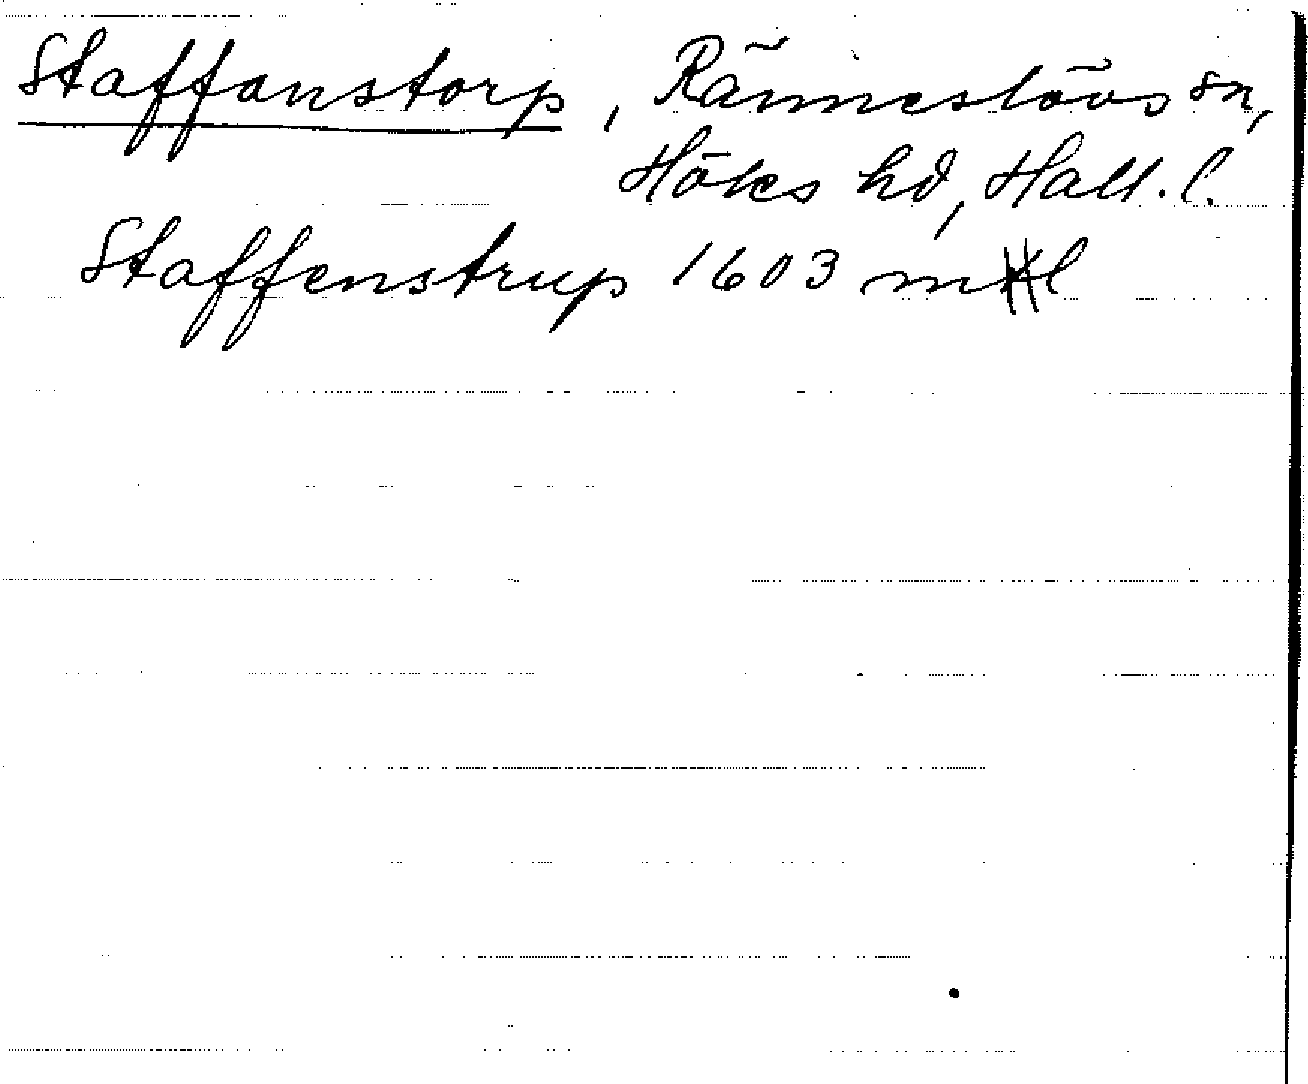 Staffanstorp, Ränneslövs sn,
Höks hd, Hall. l.
Staffenstrup 1603